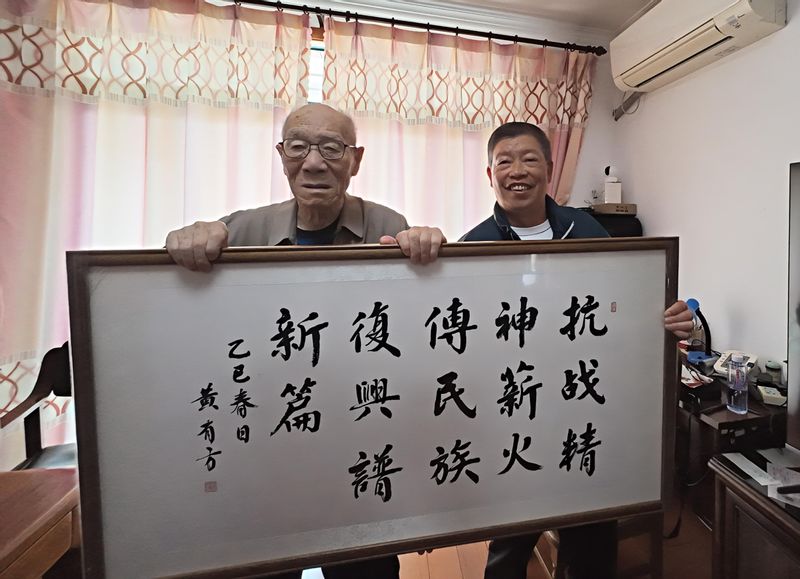 抗战精
神薪火
傳民族
復興譜
新篇
乙巳春日
黄有方